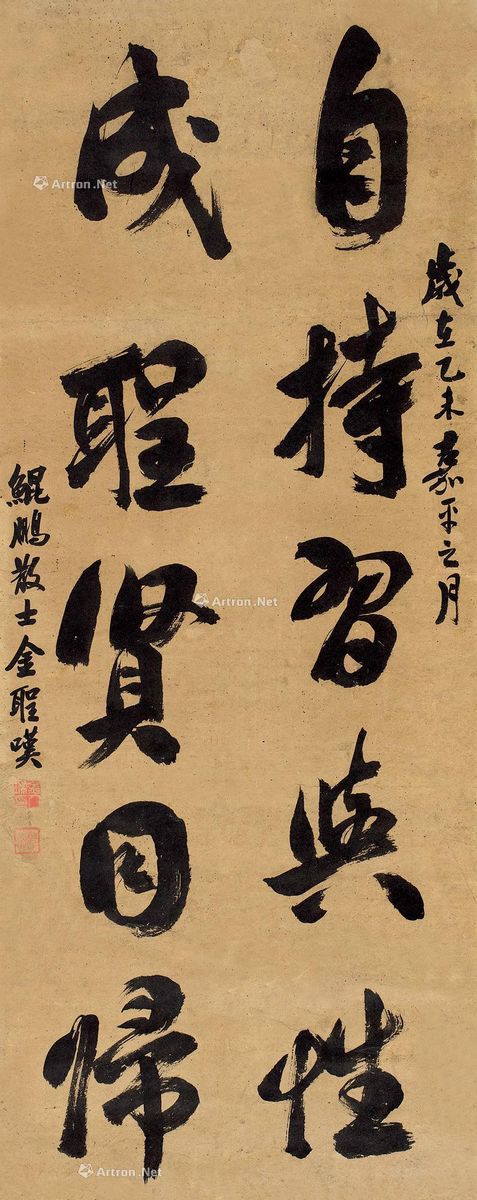 歲在乙未嘉平之月
自持習與性
成聖賢同歸
鯤鵬散士金聖嘆
Artron.Net
Artron.Net
Artron.Net